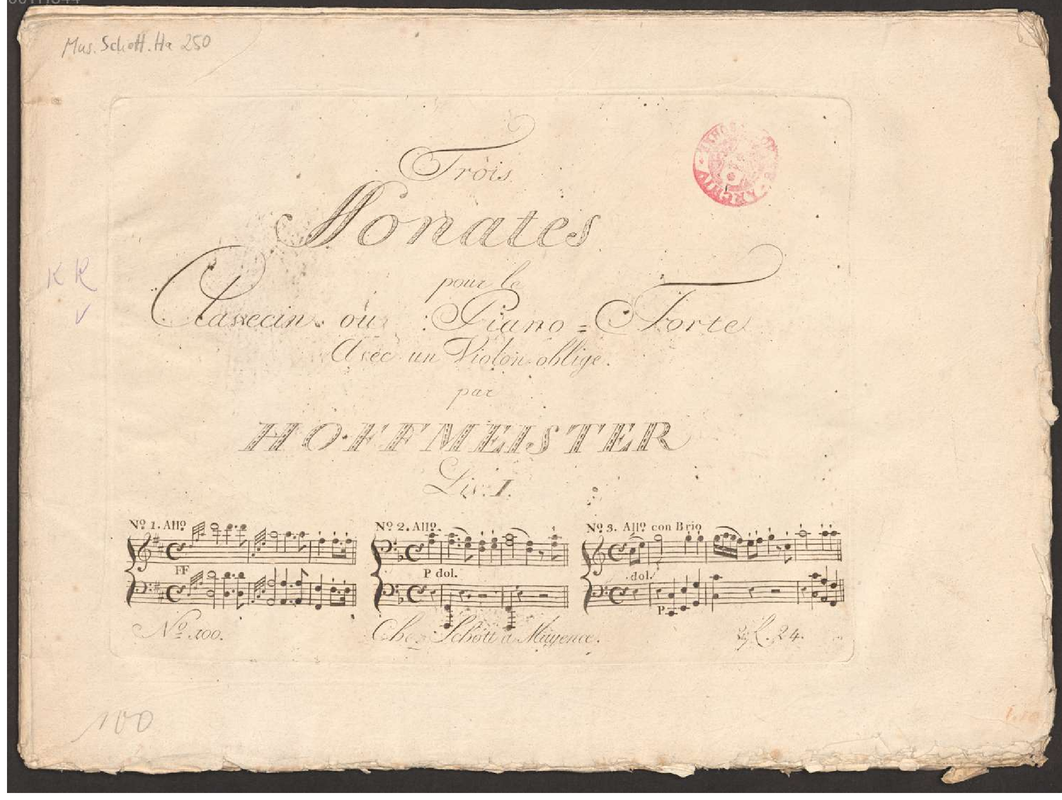 Mus. Schott. Ha 250
Trois
Sonates
pour le
Clavecin ou Piano=Forte
Avec un Violon oblige.
par
HOFFMEISTER
Liv: I.
Nº 1. Allº.
Nº 2. Allº.
Nº 3. Allº con Brio
FF
P dol.
dol.
P
Nº 100.
Chez Schott a Mayence.
24.
100
ARCHIV
KK